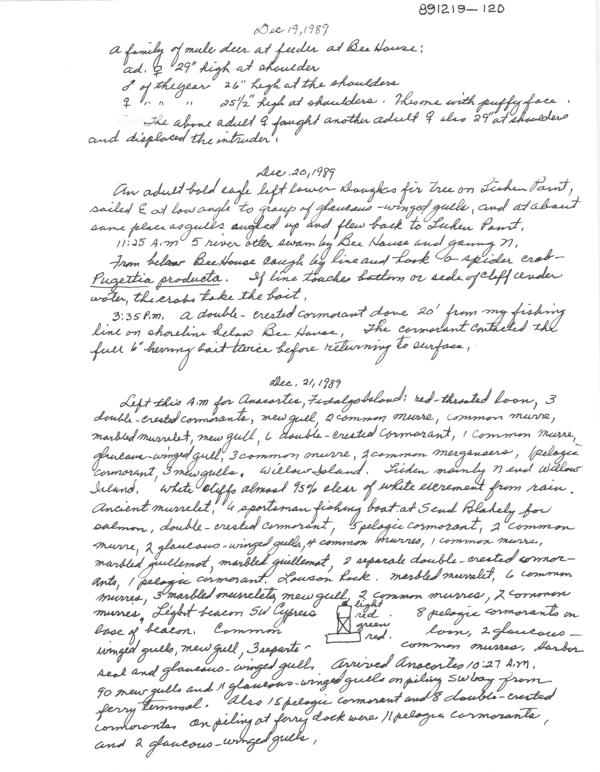 891219-120
Dec 19, 1989
A family of mule deer at feeder at Bee House:
ad. ♀ 29" high at shoulder
♂ of the year 26" high at the shoulders
♀ " " " 25 1/2" high at shoulders. This one with puffy face.
The above adult ♀ fought another adult ♀ also 29" at shoulders
and displaced the intruder.
Dec. 20, 1989
An adult bald eagle left lower Douglas fir tree on Lichen Point,
sailed E at low angle to group of glaucous-winged gulls, and at about
same place as gulls angled up and flew back to Lichen Point.
11:25 A.M 5 river otter swam by Bee House and going N.
From below Bee House caught by line and hook a spider crab-
Pugettia producta. If line touches bottom or side of cliff under
water, the crabs take the bait.
3:35 P.M. A double-crested cormorant dove 20' from my fishing
line on shoreline below Bee House. The cormorant contacted the
full 6" herring bait twice before returning to surface.
Dec. 21, 1989
Left this A.M for Anacortes, Fidalgo Island: red-throated loon, 3
double-crested cormorants, mew gull, 2 common murre, common murre,
marbled murrelet, mew gull, 6 double-crested cormorant, 1 common murre,
glaucous-winged gull, 3 common murre, 2 common mergansers, 1 pelagic
cormorant, 3 mew gulls. Willow Island. Lichen mainly N end Willow
Island. White cliffs almost 95% clear of white excrement from rain.
Ancient murrelet, 4 sportsman fishing boat at Scud Blakely for
salmon, double-crested cormorant, 5 pelagic cormorant, 2 common
murre, 2 glaucous-winged gulls, 4 common murres, 1 common murre,
marbled guillemot, marbled guillemot, 2 separate double-crested cormor-
ants, 1 pelagic cormorant. Lawson Rock. marbled murrelet, 6 common
murres, 3 marbled murrelets, mew gull, 2 common murres, 2 common
murres, Light beacon SW Cypress
light
red
green
red.
8 pelagic cormorants on
base of beacon. Common loon, 2 glaucous-
winged gulls, mew gull, 3 separate common murres. Harbor
seal and glaucous-winged gull. Arrived Anacortes 10:27 A.M.
90 mew gulls and 11 glaucous-winged gulls on piling SW bay from
ferry terminal. Also 15 pelagic cormorant and 8 double-crested
cormorants. On piling at ferry dock were 11 pelagic cormorants,
and 2 glaucous-winged gulls.